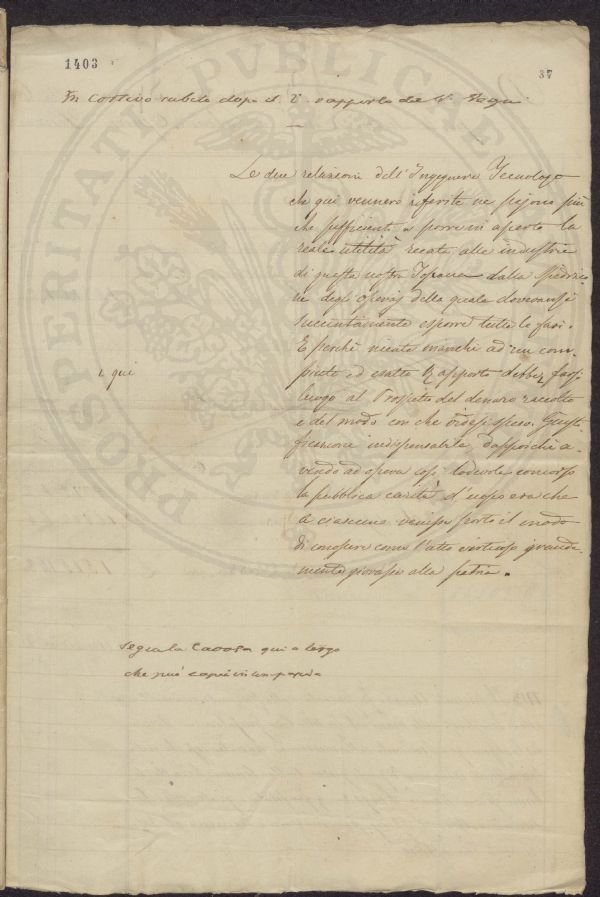 1403
37
In corsivo subito dopo il 2º rapporto del S. Segui
Le due relazioni dell'Ingegnere Tecnologo
che qui vennero riferite ne pajono più
che sufficienti a porre in aperto la
reale utilità recata alle industrie
di questa nostra Toscana dalla spedizio
ne degli operaj della quale dovevansi
succintamente esporre tutte le fasi.
E perchè niente manchi ad un com-
pinto ed esatto Rapporto debbe farsi
luogo al Prospetto del denaro raccolto
e del modo con che videsi speso. Questi
indispensabile dappoichè a-
vendo ad opera così lodevole concorso
la pubblica carità d'uopo era che
a ciascuno venisse porto il modo
di conoscere come l'atto virtuoso grande-
mente giovasse alla patria.
e qui
segue la qui a tergo
che può
PROSPERITATI PUBLICAE